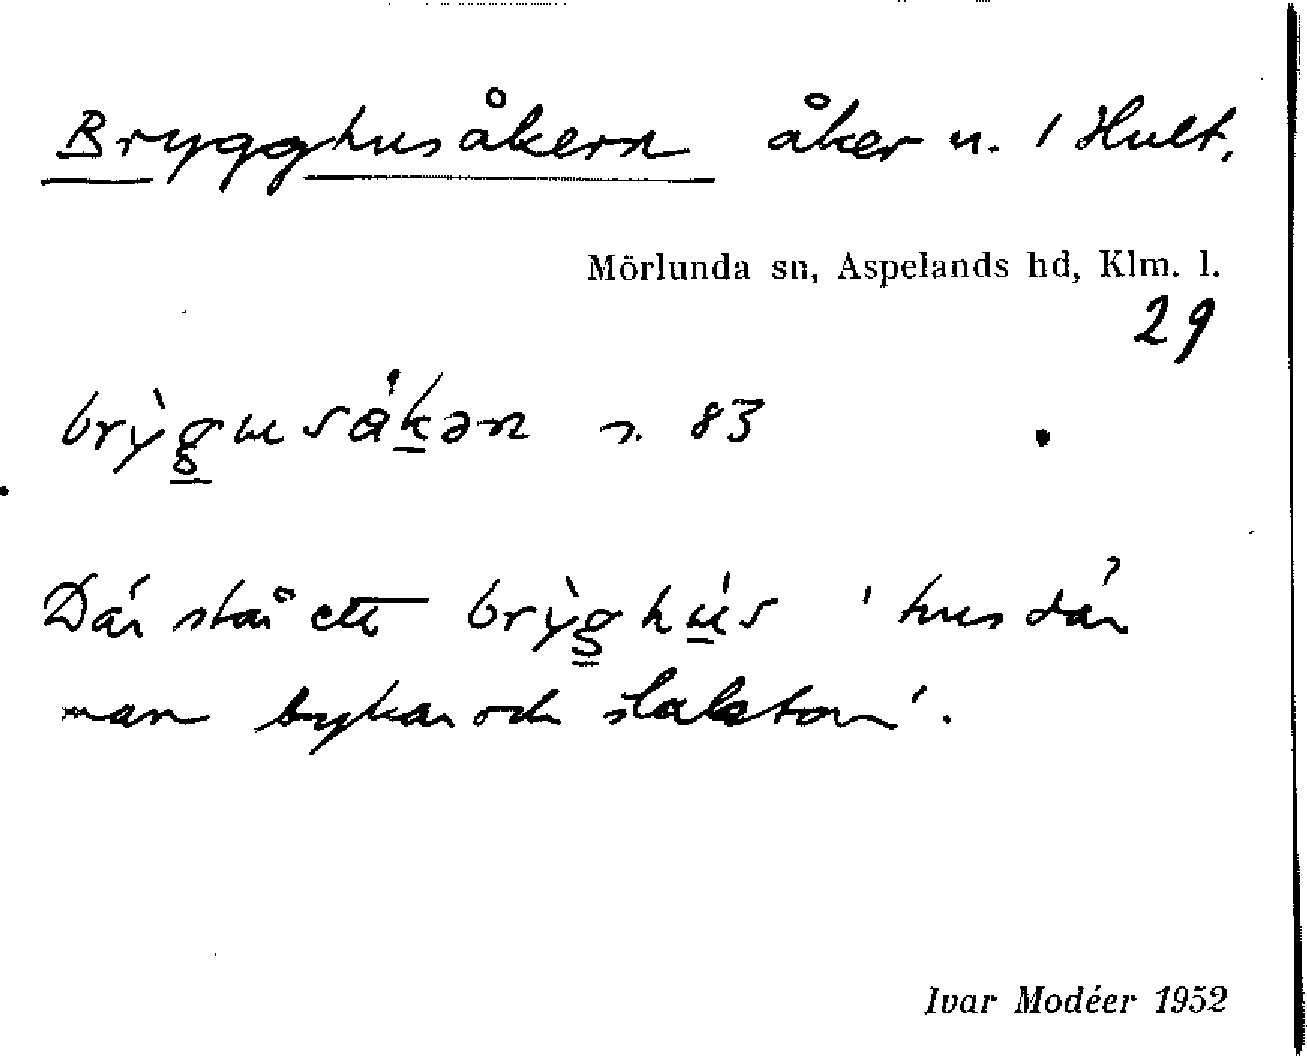 Brygghusåkern åker u. 1 Hult.
Mörlunda sn, Aspelands hd, Klm. l.
29
brỳgusåkən s. 83
Där står ett brỳghús 'hus där
man bykar och slaktar'.
Ivar Modéer 1952